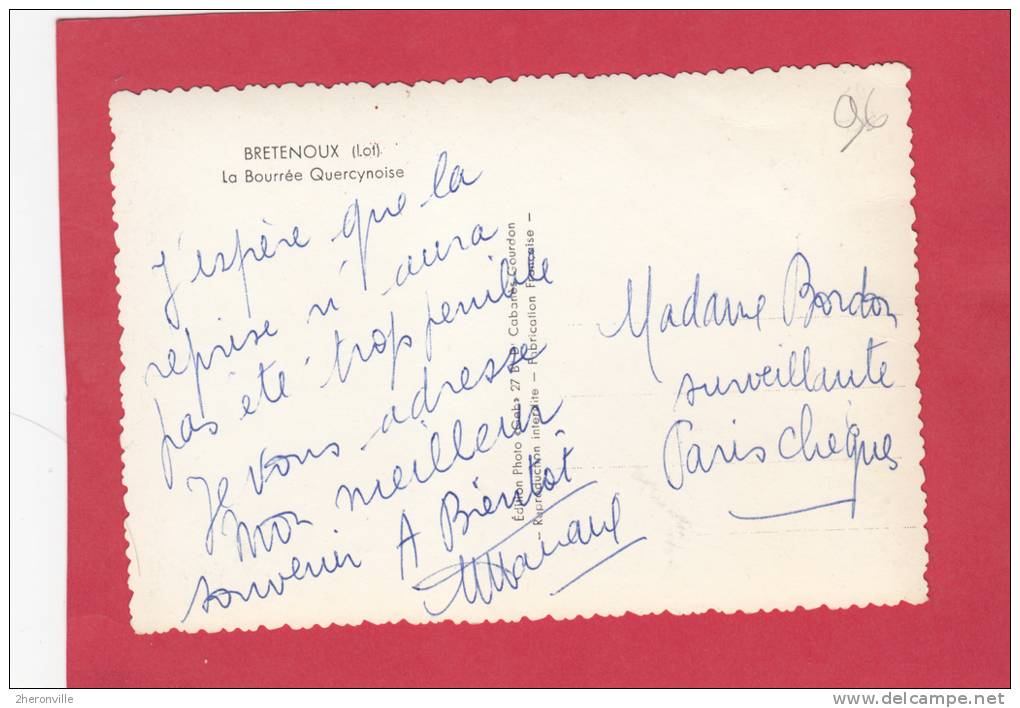 96
BRETENOUX (Lot)
La Bourrée Quercynoise
J'espère que la
reprise n'aura
pas été trop penible
Je vous adresse
mon meilleur
souvenir A Bientôt
Édition Photo «Geb» 27 Cabanès Gourdon
— Reproduction interdite — Fabrication Française —
Madame Bordon
surveillante
Paris chèques
2heronville
www.delcampe.net